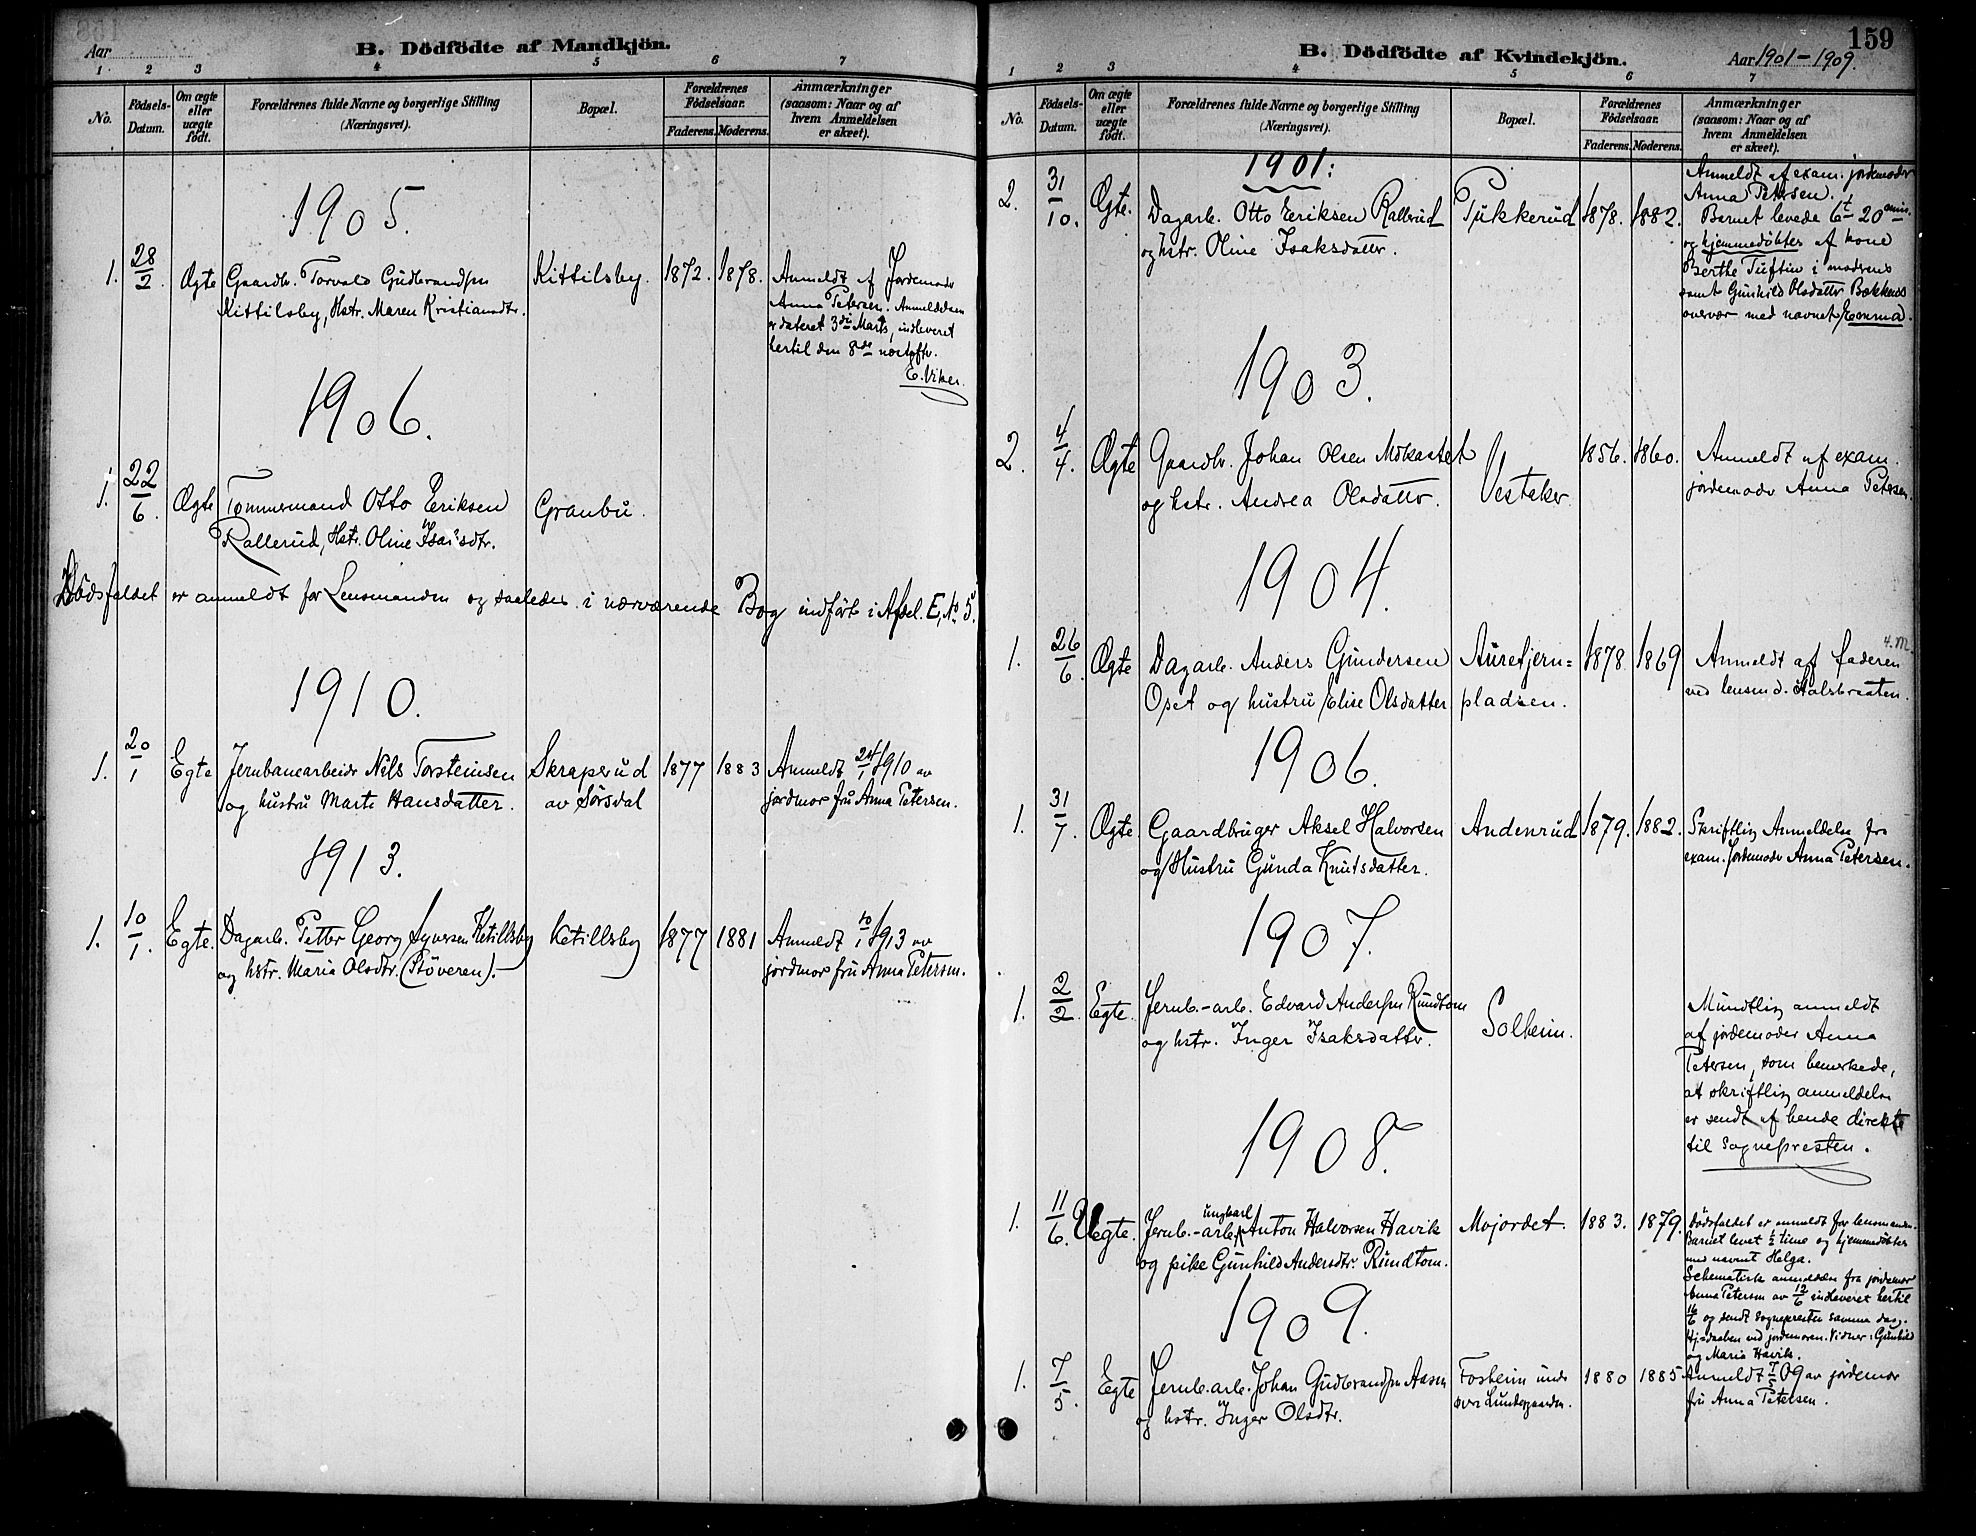 Aar
B. Dödfödte af Mandkjön.
1 2 3 4 5 6 7
No. Födsels-Datum. Om ægte eller uægte födt. Forældrenes fulde Navne og borgerlige Stilling (Næringsvei). Bopæl. Forældrenes Födselsaar. Faderens. Moderens. Anmærkninger (saasom: Naar og af hvem Anmeldelsen er skeet).
1905.
1. 28/2 Ægte Gaardbr. Torvald Gudbrandsen Kittilsby. 1872. 1878. Anmeldt af Jordemoder
Kittilsby, Hstr. Maren Kristiansdtr. Anna Petersen. Anmeldelsen
er dateret 3die Marts, indleveret
hertil den 8de næstefter.
E. Viker.
1906.
1. 22/6 Ægte Tømmermand Otto Eriksen Granbu.
Rallerud, Hstr. Oline Isaksdtr.
Dødsfaldet er anmeldt for Lensmanden og saaledes i nærværende Bog indført i Afdel. E, No 5.
1910.
1. 20/1 Egte Jernbanearbeider Nils Torsteinsen Skraperud 1877 1883 Anmeldt 24/1 1910 av
og hustru Marte Hansdatter. av Sørsdal jordmor fru Anna Petersen.
1913.
1. 10/1. Egte. Dagarb. Petter Georg Syversen Ketillsby Ketillsby 1877 1881 Anmeldt 10/1 1913 av
og hstr. Maria Olsdtr. (Støveren). jordmor fru Anna Petersen.
159
B. Dödfödte af Kvindekjön.
Aar 1901-1909.
1 2 3 4 5 6 7
No. Födsels-Datum. Om ægte eller uægte födt. Forældrenes fulde Navne og borgerlige Stilling (Næringsvei). Bopæl. Forældrenes Födselsaar. Faderens. Moderens. Anmærkninger (saasom: Naar og af hvem Anmeldelsen er skeet).
1901:
2. 31/10. Ægte. Dagarb. Otto Eriksen Rallerud Pukkerud 1878. 1882. Anmeldt af exam. jordemoder
og hstr. Oline Isaksdatter. Anna Petersen.
Barnet levede 6t 20min.
og hjemmedøbtes af kone
Berthe Tuftin i moderens
samt Gunhild Olsdatter Bækkens
overvær med navnet Emma.
1903.
2. 4/4. Ægte Gaardbr. Johan Olsen Mokastet Vesteker 1856. 1860. Anmeldt af exam.
og hstr. Andrea Olsdatter. jordemoder Anna Petersen.
1904.
1. 26/6. Ægte Dagarb. Anders Gundersen Auretjern= 1878 1869 Anmeldt af faderen
Opset og hustru Elise Olsdatter pladsen. ved lensmd. Halsbraaten.
1906.
1. 31/7. Ægte Gaardbruger Aksel Halvorsen Andenrud 1879. 1882. Skriftlig Anmeldelse fra
og Hustru Gunda Knutsdatter. exam. Jordemoder Anna Petersen.
1907.
1. 2/2. Egte. Jernb.-arb. Edvard Andersen Rundtom Solheim.
og hstr. Inger Isaksdatter.
Mundtlig anmeldt
af jordemoder Anna
Petersen, som bemerkede,
at skriftlig anmeldelse
er sendt af hende direkte
til sognepresten.
1908.
1. 11/6. Uegte. Jernb.-arb. ungkarl Anton Halvorsen Havik Mojordet. 1883. 1879. Dødsfaldet er anmeldt for lensmanden.
og pike Gunhild Andersdtr. Rundtom. Barnet levet 1/2 time og hjemmedøbtes
med navnet Helga.
Schematisk anmeldelse fra jordemor
Anna Petersen av 12/6 indleveret hertil
16/6 og sendt sognepresten samme dag.
Hj.-daaben ved jordemoren. Vidner: Gunhild
og Maria Havik.
1909.
1. 7/5. Egte Jernb.arb. Johan Gudbrandsen Aasen Fosheim under 1880 1885 Anmeldt 7/5 09 av jordemor
og hstr. Inger Olsdtr. øvre Lundesgaarden. fru Anna Petersen.